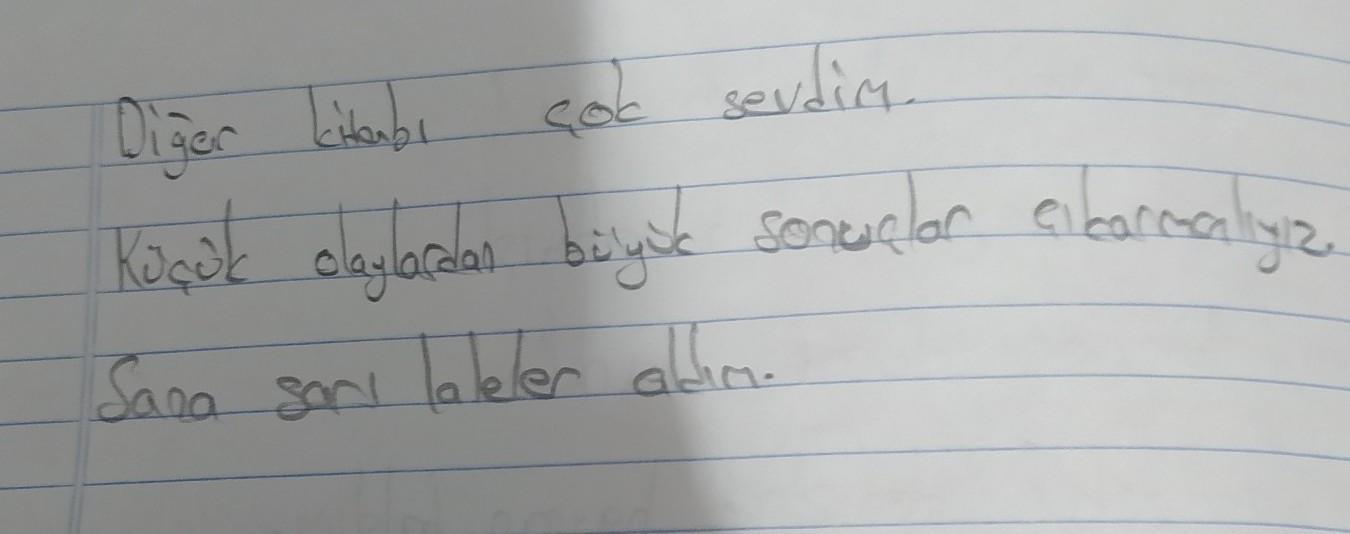 Diğer kitabı çok sevdim.
Küçük olaylardan büyük sonuçlar çıkarmalıyız.
Sana sarı laleler aldım.